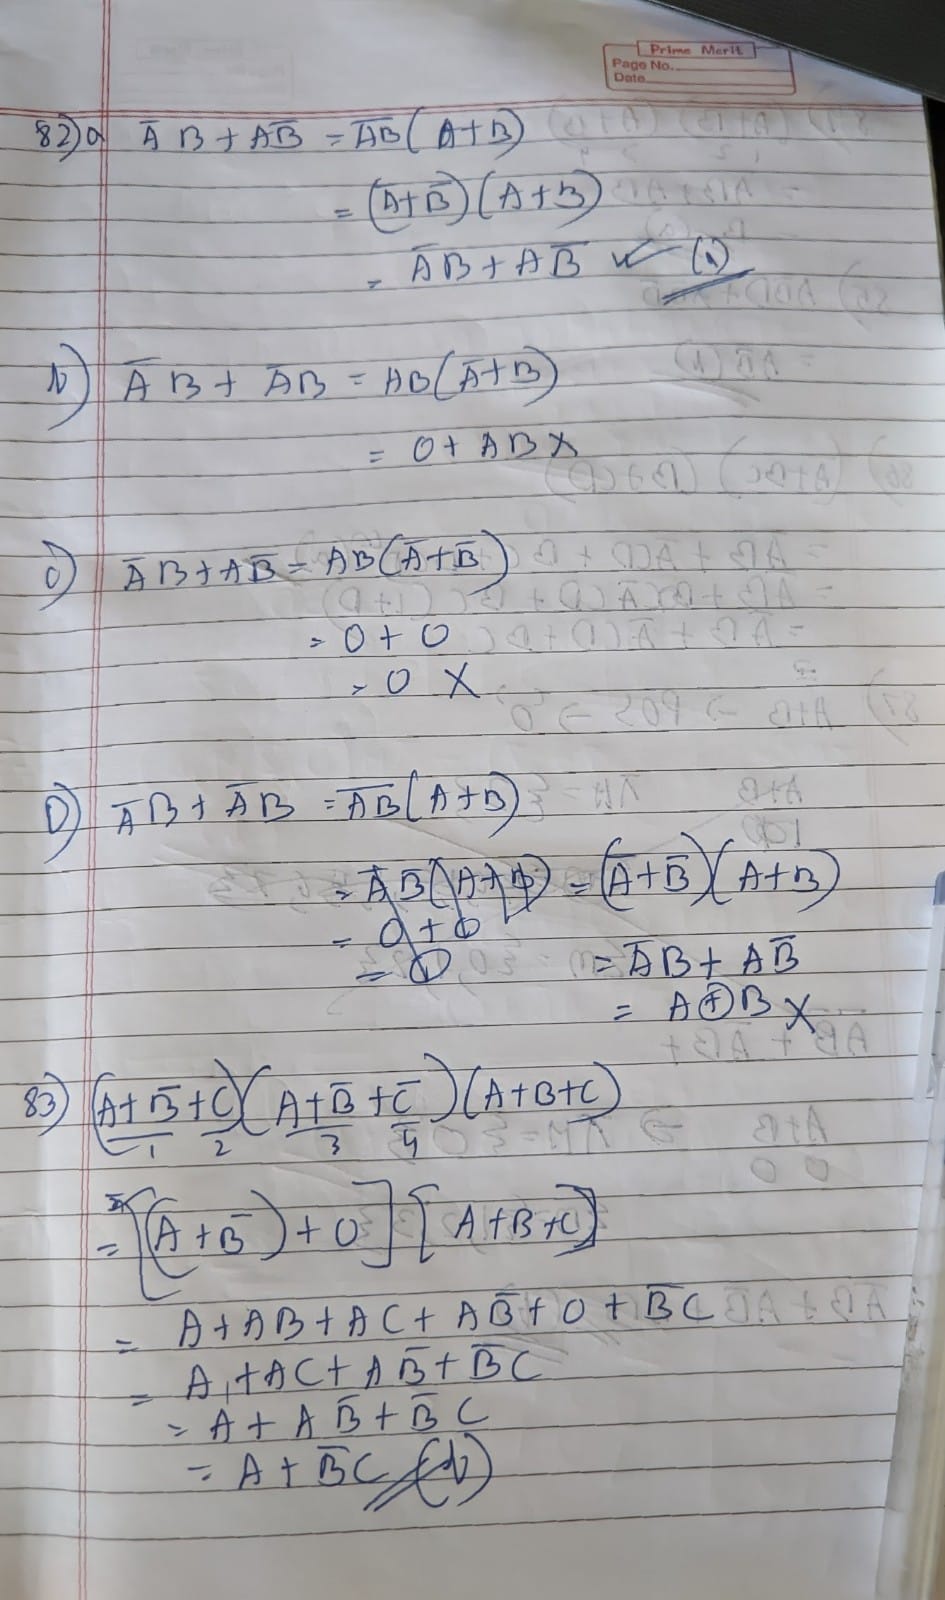 Prime Merit
Page No.
Date
82) a) A̅B + AB̅ = A̅B̅ (A+B)
= (A̅+B̅) (A+B)
= A̅B + AB̅ ✓ (A)
b) A̅B + A̅B = AB(A̅+B)
= 0 + AB X
c) A̅B + AB̅ = AB(A̅+B̅)
= 0 + 0
= 0 X
D) A̅B + A̅B = A̅B̅ (A+B)
= (A̅+B̅) (A+B)
= 0 + 0
= A̅B + AB̅
= A⊕B X
83) (A+B̅+C) (A+B̅+C̅) (A+B+C)
1 2 3 4
= [(A+B̅) + 0] [A+B+C]
= A + AB + AC + AB̅ + 0 + B̅C
= A + AC + AB̅ + B̅C
= A + AB̅ + B̅C
= A + B̅C (b)